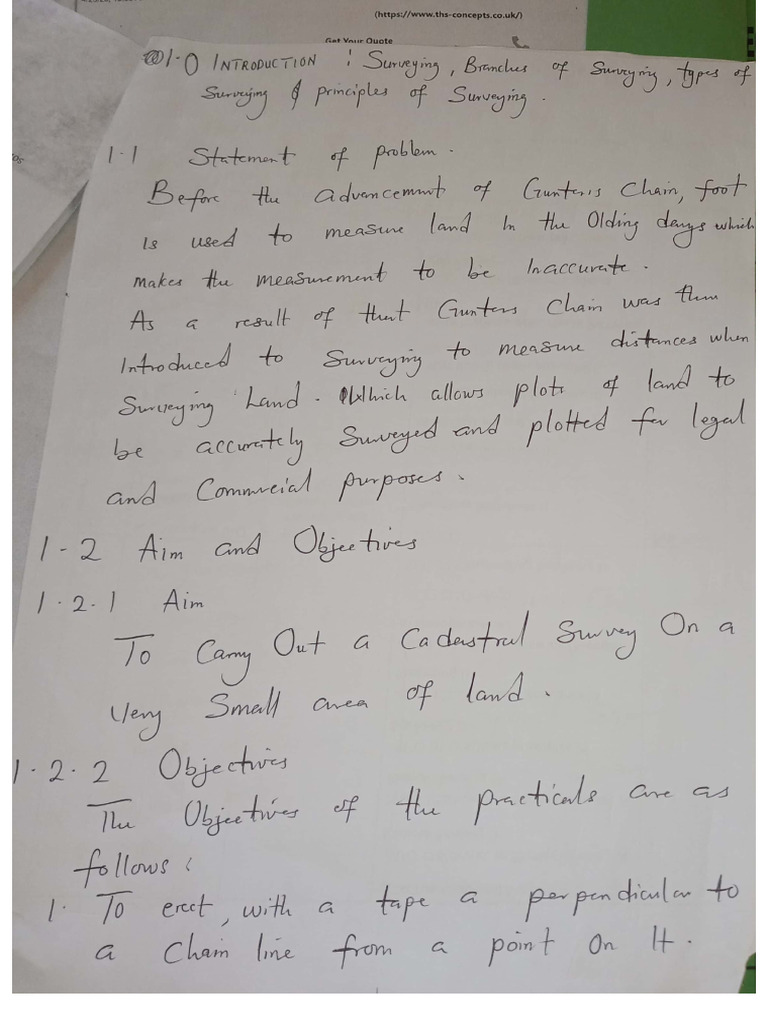 (https://www.ths-concepts.co.uk/)
Get Your Quote
1.0 INTRODUCTION : Surveying, Branches of Surveying, types of
Surveying & principles of Surveying.
1.1 Statement of problem.
Before the advancement of Gunter's Chain, foot
is used to measure land In the Olding days which
makes the measurement to be Inaccurate.
As a result of that Gunters Chain was then
Introduced to Surveying to measure distances when
Surveying Land. Which allows plots of land to
be accurately Surveyed and plotted for legal
and Commercial purposes.
1-2 Aim and Objectives
1.2.1 Aim
To Carry Out a Cadastral Survey On a
Very Small area of land.
1.2.2 Objectives
The Objectives of the practicals are as
follows:
1. To erect, with a tape a perpendicular to
a Chain line from a point On It.